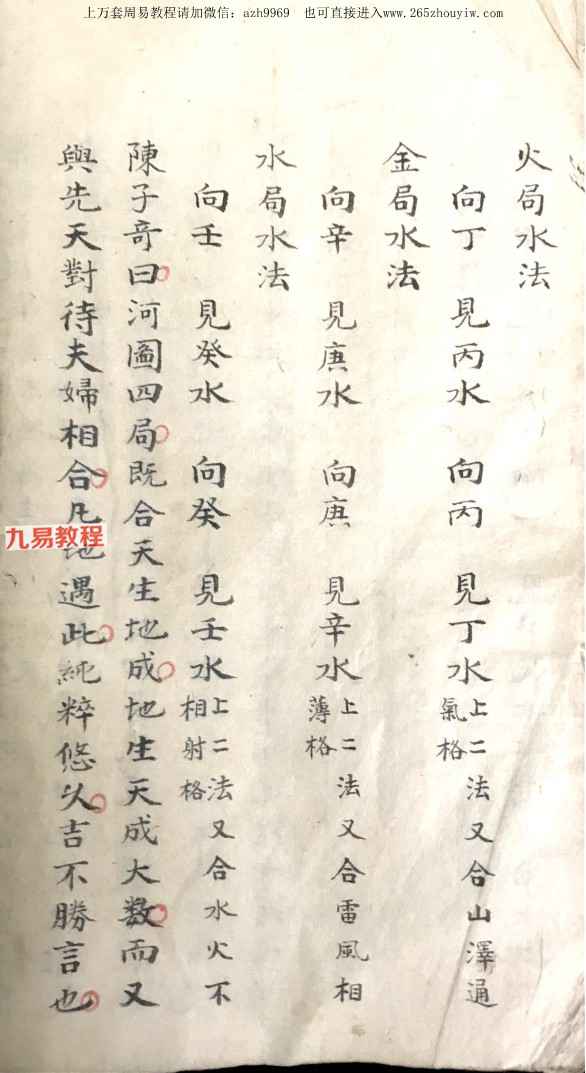 上万套周易教程请加微信：azh9969 也可直接进入www.265zhouyiw.com
火局水法
向丁 見丙水 向丙 見丁水 上二法又合山澤通氣格
金局水法
向辛 見庚水 向庚 見辛水 上二法又合雷風相薄格
水局水法
向壬 見癸水 向癸 見壬水 上二法又合水火不相射格
陳子奇曰河圖四局既合天生地成地生天成大数而又
與先天對待夫婦相合凡地遇此純粹悠久吉不勝言也
九易教程